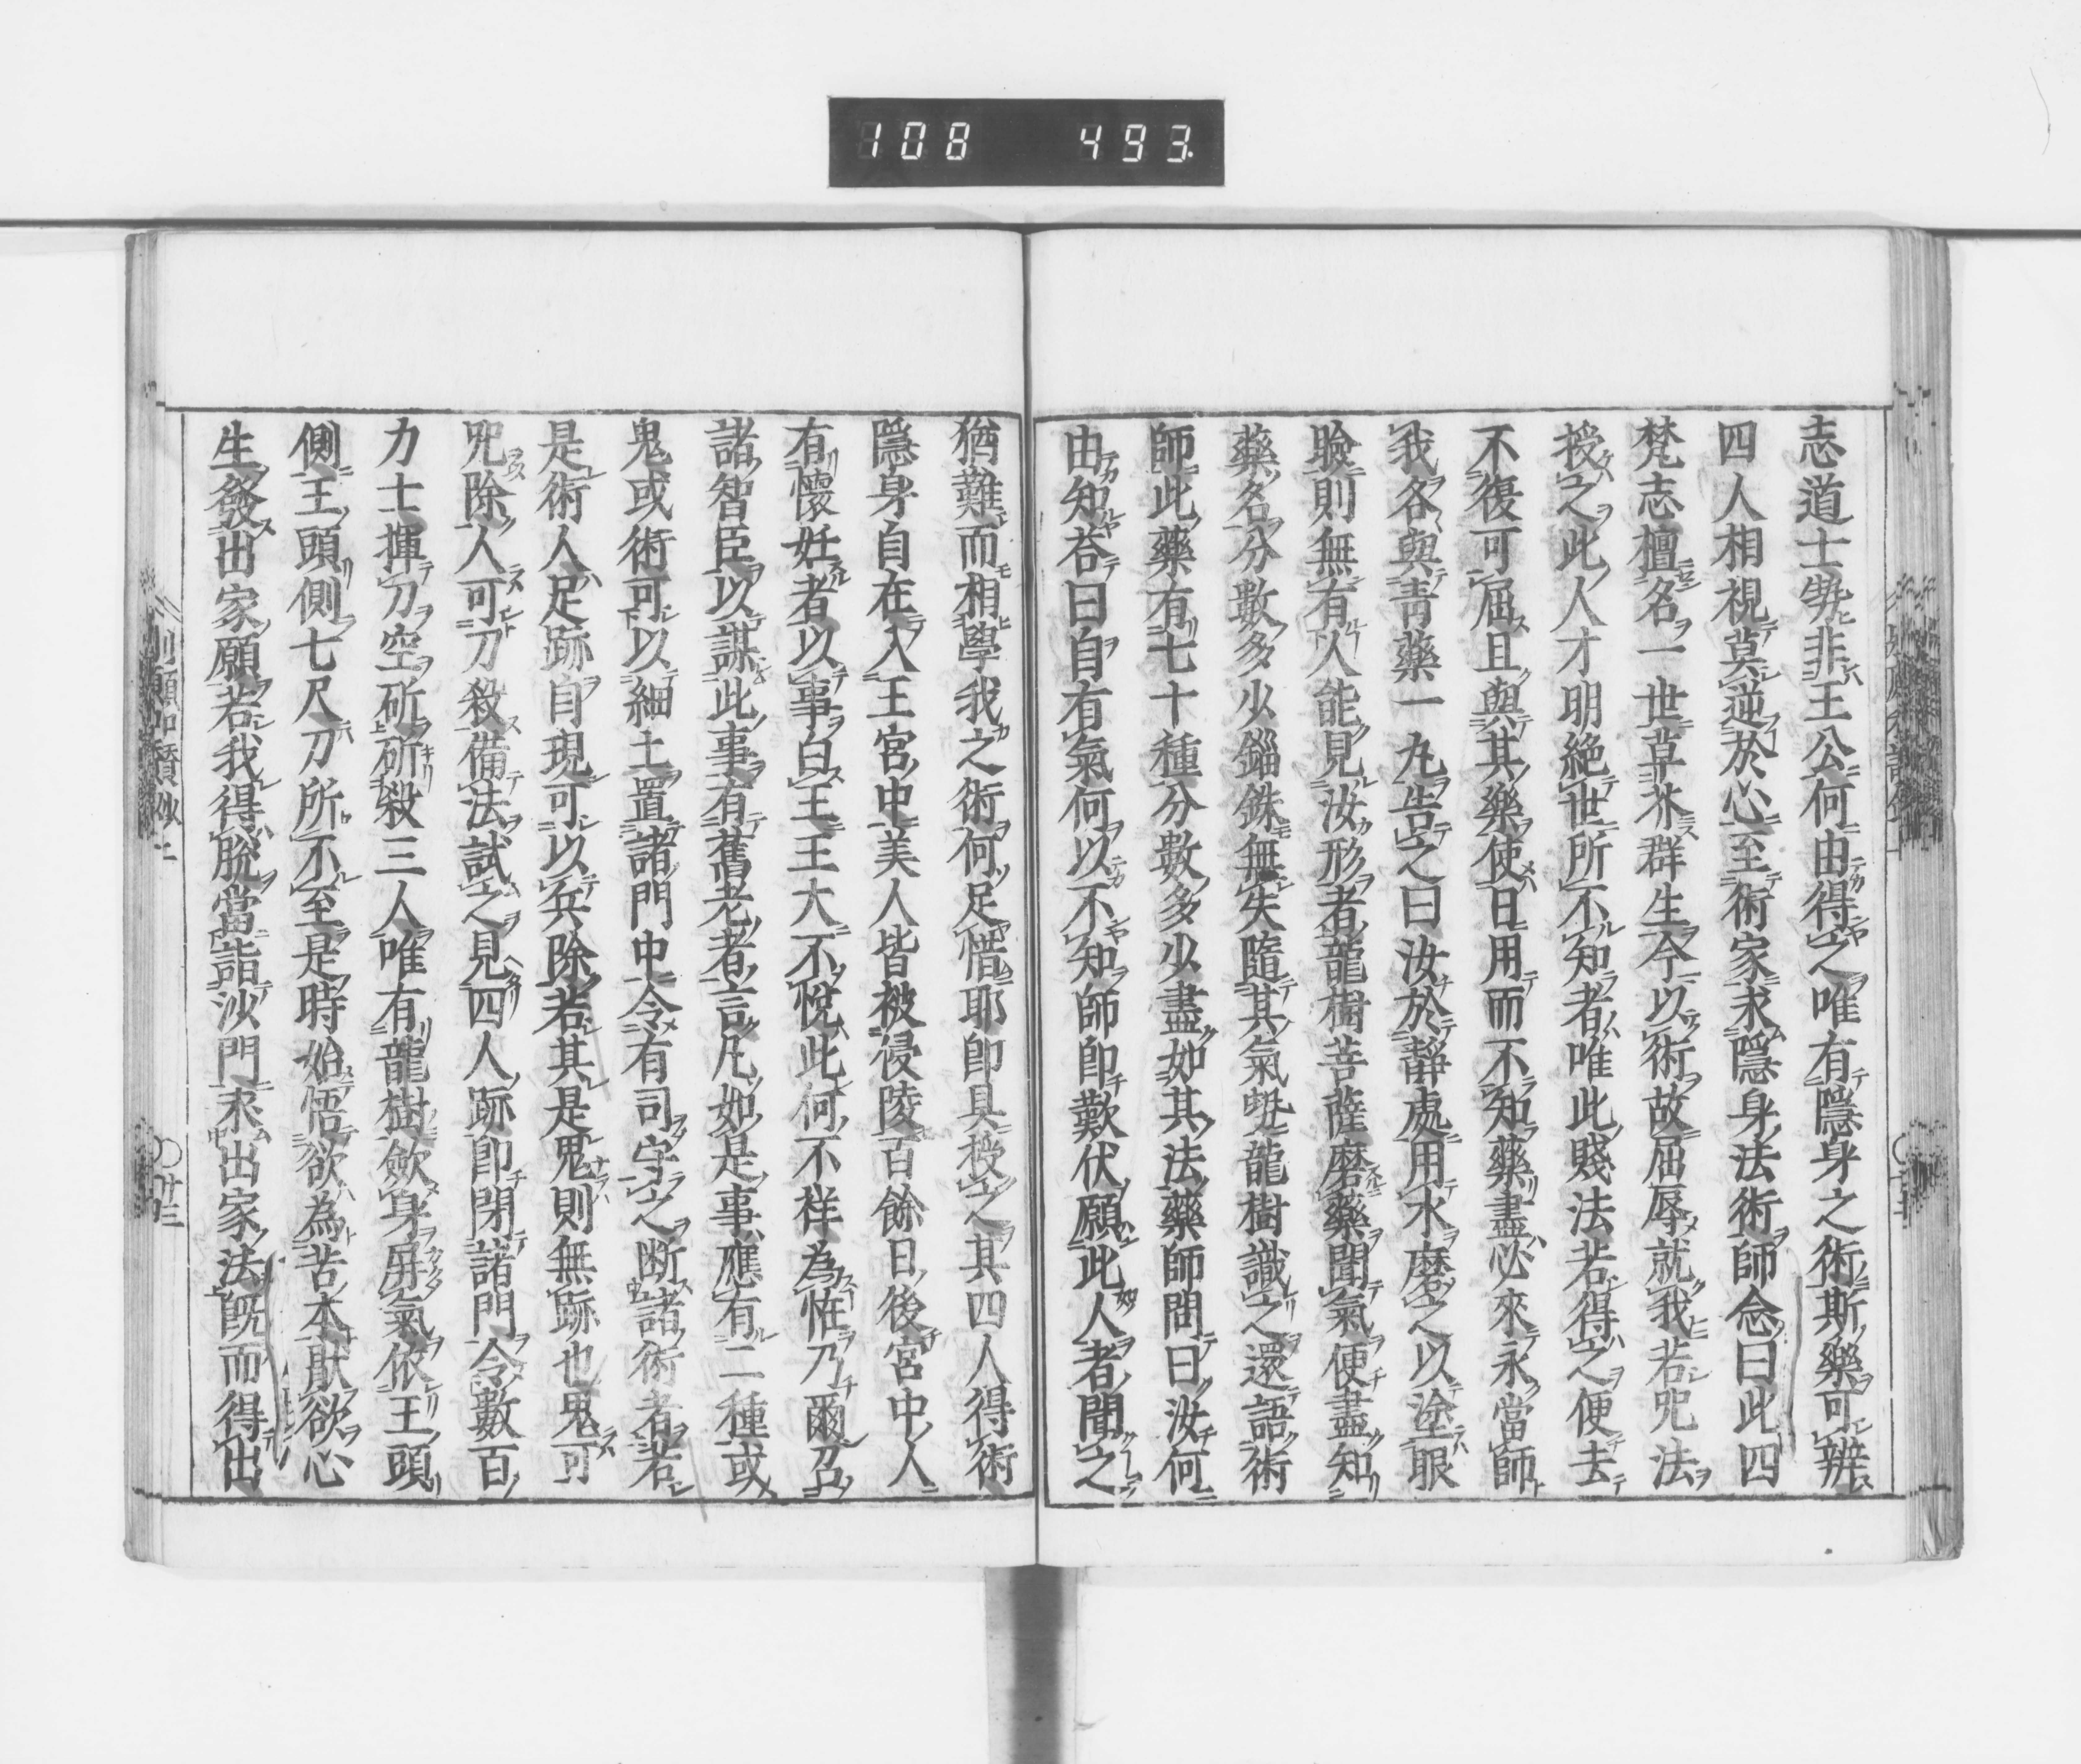 108 493
志道士勢非王公何由得之唯有隱身之術斯樂可辨
四人相視莫逆於心至術家求隱身法術師念曰此四
梵志擅名一世草芥群生今以術故屈辱就我若咒法
授之此人才明絶世所不知者唯此賤法若得之便去
不復可屈且與其藥使日用而不知藥盡必來永當師
我各與青藥一丸告之曰汝於靜處用水磨之以塗眼
瞼則無有人能見汝形者龍樹菩薩磨藥聞氣便盡知
藥名分數多少錙銖無失隨其氣勢龍樹識之還語術
師此藥有七十種分數多少盡如其法藥師問曰汝何
由知荅曰自有氣何以不知師即歎伏願此人者聞之
猶難而相學我之術何足惜耶即具授之其四人得術
隱身自在入王宮中美人皆被侵陵百餘日後宮中人
有懷妊者以事白王王大不悅此何不祥為恠乃爾召
諸智臣以謀此事有舊老者言凡如是事應有二種或
鬼或術可以細土置諸門中令有司守之断諸術者若
是術人足跡自現可以兵除若其是鬼則無跡也鬼可
咒除人可刀殺備法試之見四人跡即閉諸門令數百
力士揮刀空斫斫殺三人唯有龍樹斂身屏氣依王頭
側王頭側七尺刀所不至是時始悟欲為苦本猒欲心
生發出家願若我得脫當詣沙門求出家法既而得出
別願和賛抄二
〇廿三